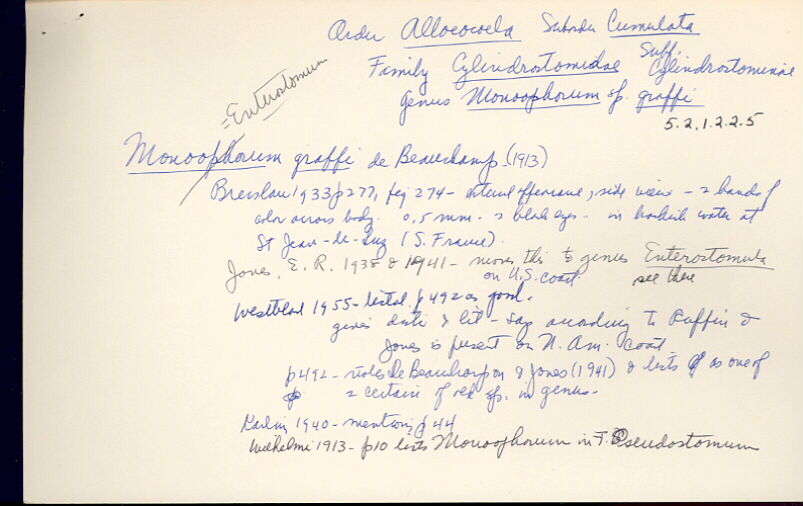 Order Alloeocoela Suborder Cumulata
Family Cylindrostomidae Subf. Cylindrostominae
Genus Monoophorum sp. graffi
5.2.1.2.2.5
= Enterostomum
Monoophorum graffi de Beauchamp (1913)
Bresslau 1933 p 277, fig 274 - external appearance, side view - 2 bands of
color across body. 0.5 mm. 2 black eyes - in brackish water at
St Jean-de-Luz (S. France).
Jones, E. R. 1938 & 1941 - moves this to genus Enterostomula
on U.S. coast see there
Westblad 1955 - listed p 492 as good.
gives distr & lit - says according to Ruffin &
Jones is present on N. Am. coast
p 492 - notes de Beauchamp on & Jones (1941) & lists as one of
2 certain of sp. in genus.
Karling 1940 - mentions, p 44
Wilhelmi 1913 - p10 lists Monoophorum in F. Pseudostomum